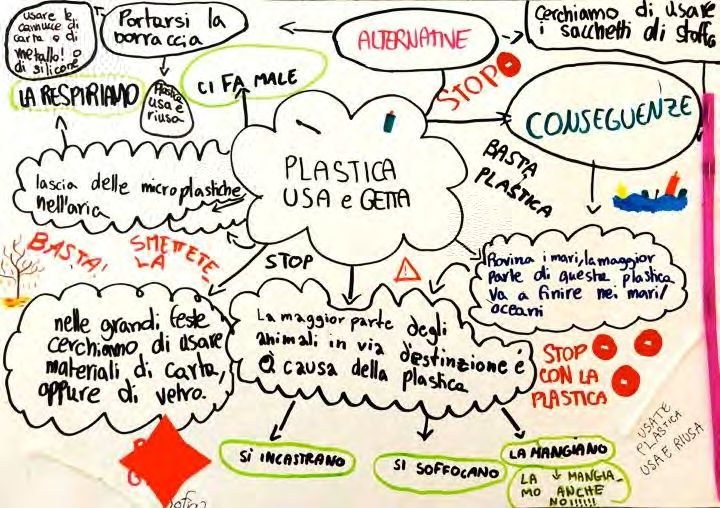 usare le
cannucce di
carta o di
metallo! o
di silicone
Portarsi la
borraccia
ALTERNATIVE
Cerchiamo di usare
i sacchetti di stoffa
LA RESPIRIAMO
Plastica
usa e
riusa
CI FA MALE
STOP
CONSEGUENZE
PLASTICA
USA e GETTA
BASTA
PLASTICA
lascia delle microplastiche
nell'aria
BASTA!
SMETTETE
LA
STOP
Rovina i mari, la maggior
parte di questa plastica
va a finire nei mari/
oceani
nelle grandi feste
cerchiamo di usare
materiali di carta,
oppure di vetro.
La maggior parte degli
animali in via d'estinzione é
a causa della plastica
STOP
CON LA
PLASTICA
USATE
PLASTICA
USA E RIUSA
SI INCASTRANO
SI SOFFOCANO
LA MANGIANO
LA MANGIA_
MO ANCHE
NOI!!!!!!